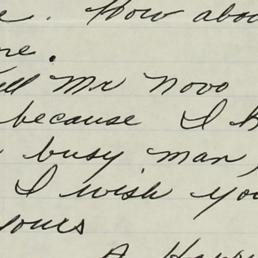 . How abou
me.
ell Mr Novo
because I k
busy man,
I wish you
yours
A Happy